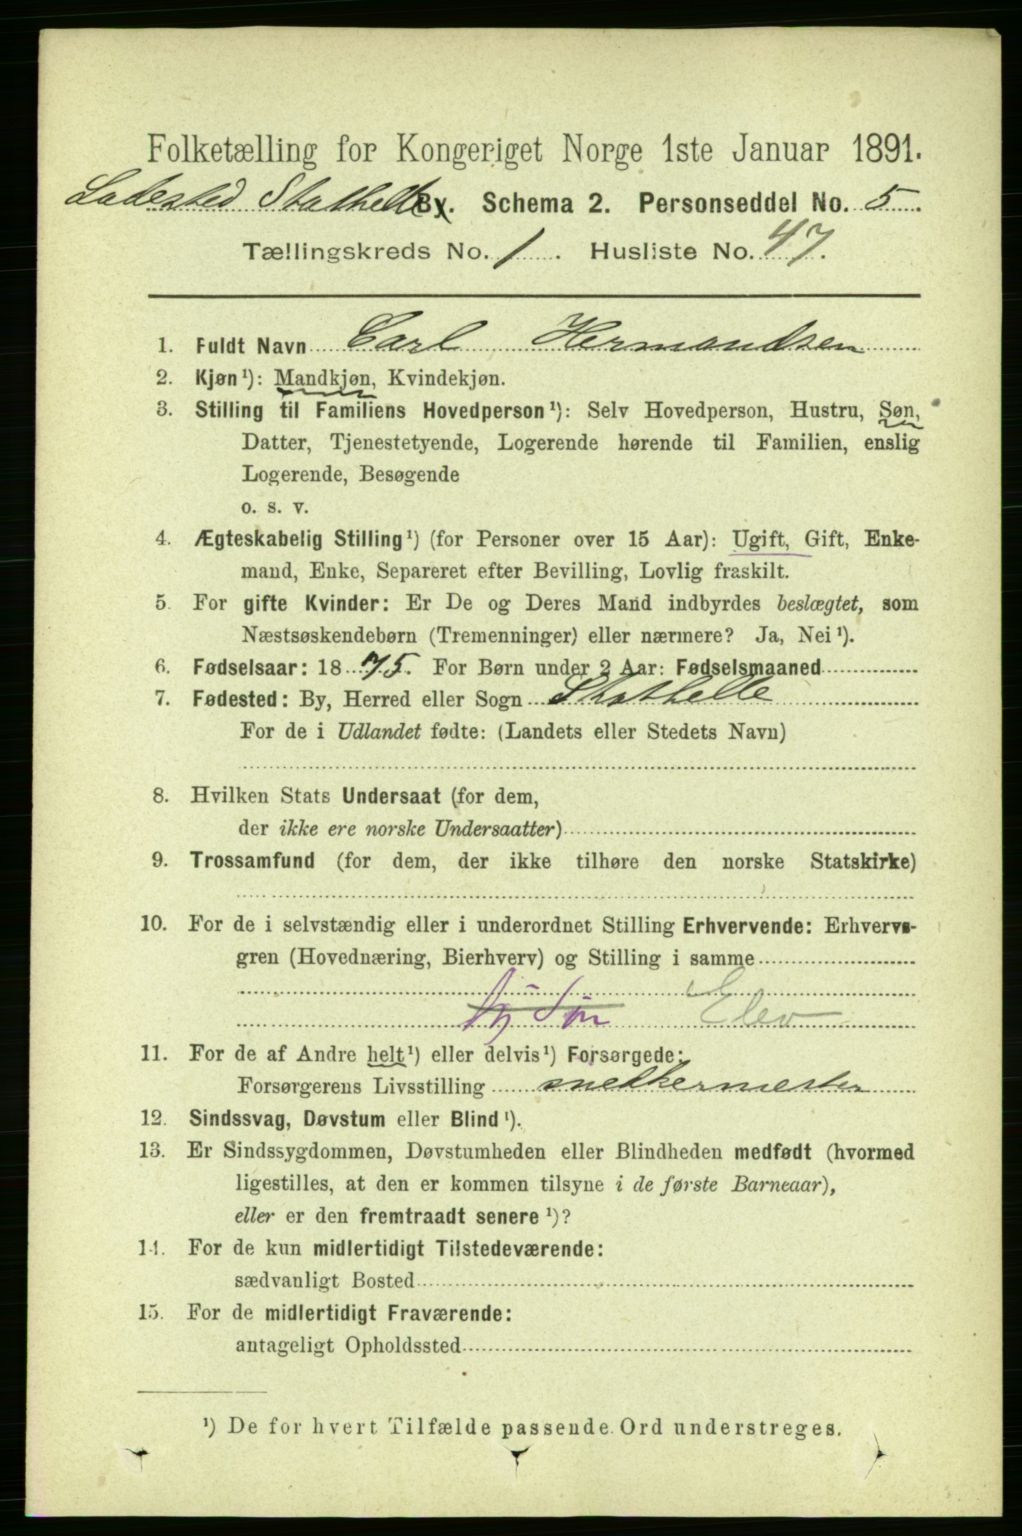 Folketælling for Kongeriget Norge 1ste Januar 1891.
Ladested Stathelle By. Schema 2. Personseddel No. 5.
Tællingskreds No. 1. Husliste No. 47.
1. Fuldt Navn Carl Hermandsen
2. Kjøn¹): Mandkjøn, Kvindekjøn.
3. Stilling til Familiens Hovedperson¹): Selv Hovedperson, Hustru, Søn,
Datter, Tjenestetyende, Logerende hørende til Familien, enslig
Logerende, Besøgende
o. s. v.
4. Ægteskabelig Stilling¹) (for Personer over 15 Aar): Ugift, Gift, Enke-
mand, Enke, Separeret efter Bevilling, Lovlig fraskilt.
5. For gifte Kvinder: Er De og Deres Mand indbyrdes beslægtet, som
Næstsøskendebørn (Tremenninger) eller nærmere? Ja, Nei¹).
6. Fødselsaar: 1875. For Børn under 2 Aar: Fødselsmaaned
7. Fødested: By, Herred eller Sogn Stathelle
For de i Udlandet fødte: (Landets eller Stedets Navn)
8. Hvilken Stats Undersaat (for dem,
der ikke ere norske Undersaatter)
9. Trossamfund (for dem, der ikke tilhøre den norske Statskirke)
10. For de i selvstændig eller i underordnet Stilling Erhvervende: Erhvervs-
gren (Hovednæring, Bierhverv) og Stilling i samme
Søn Elev
11. For de af Andre helt¹) eller delvis¹) Forsørgede:
Forsørgerens Livsstilling snekkermester
12. Sindssvag, Døvstum eller Blind¹).
13. Er Sindssygdommen, Døvstumheden eller Blindheden medfødt (hvormed
ligestilles, at den er kommen tilsyne i de første Barneaar),
eller er den fremtraadt senere¹)?
14. For de kun midlertidigt Tilstedeværende:
sædvanligt Bosted
15. For de midlertidigt Fraværende:
antageligt Opholdssted
¹) De for hvert Tilfælde passende Ord understreges.